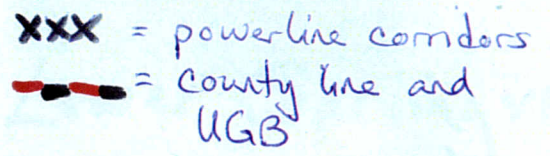 XXX = powerline corridors
= county line and
UGB